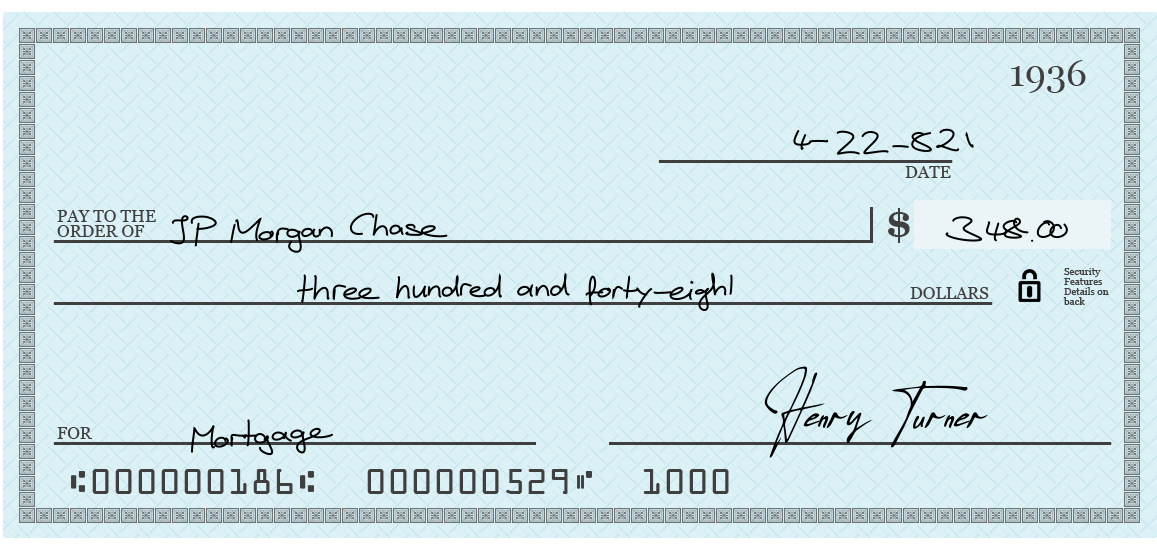 1936
4-22-821
DATE
PAY TO THE
ORDER OF JP Morgan Chase $ 348.00
three hundred and forty-eight DOLLARS
Security
Features
Details on
back
FOR Mortgage Henry Turner
⑆000000186⑆ 000000529⑈ 1000